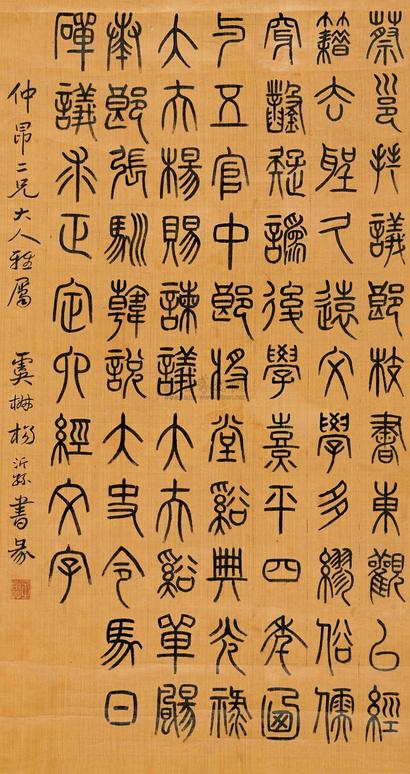 蔡邕拜議郎校書東觀以經
籍去聖久遠文學多繆俗儒
穿鑿疑誤後學熹平四年迺
与五官中郎將堂谿典光祿
大夫楊賜諫議大夫谿單颺
奏郎張馴韓說大史令馬日
磾議求正定六經文字
仲昂二兄大人雅屬 虞楊沂孫書篆